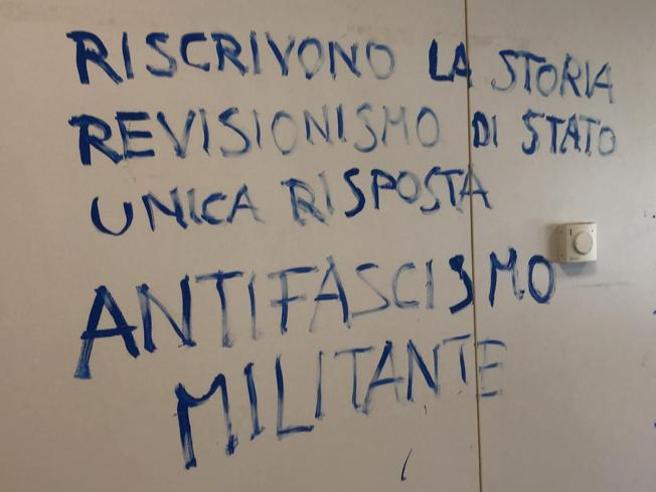 RISCRIVONO LA STORIA
REVISIONISMO DI STATO
UNICA RISPOSTA
ANTIFASCISMO
MILITANTE